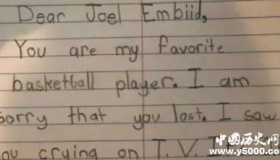 Dear Joel Embiid,
You are my favorite
basketball player. I am
sorry that you lost. I saw
you crying on T.V.
中国历史网
www.y5000.com